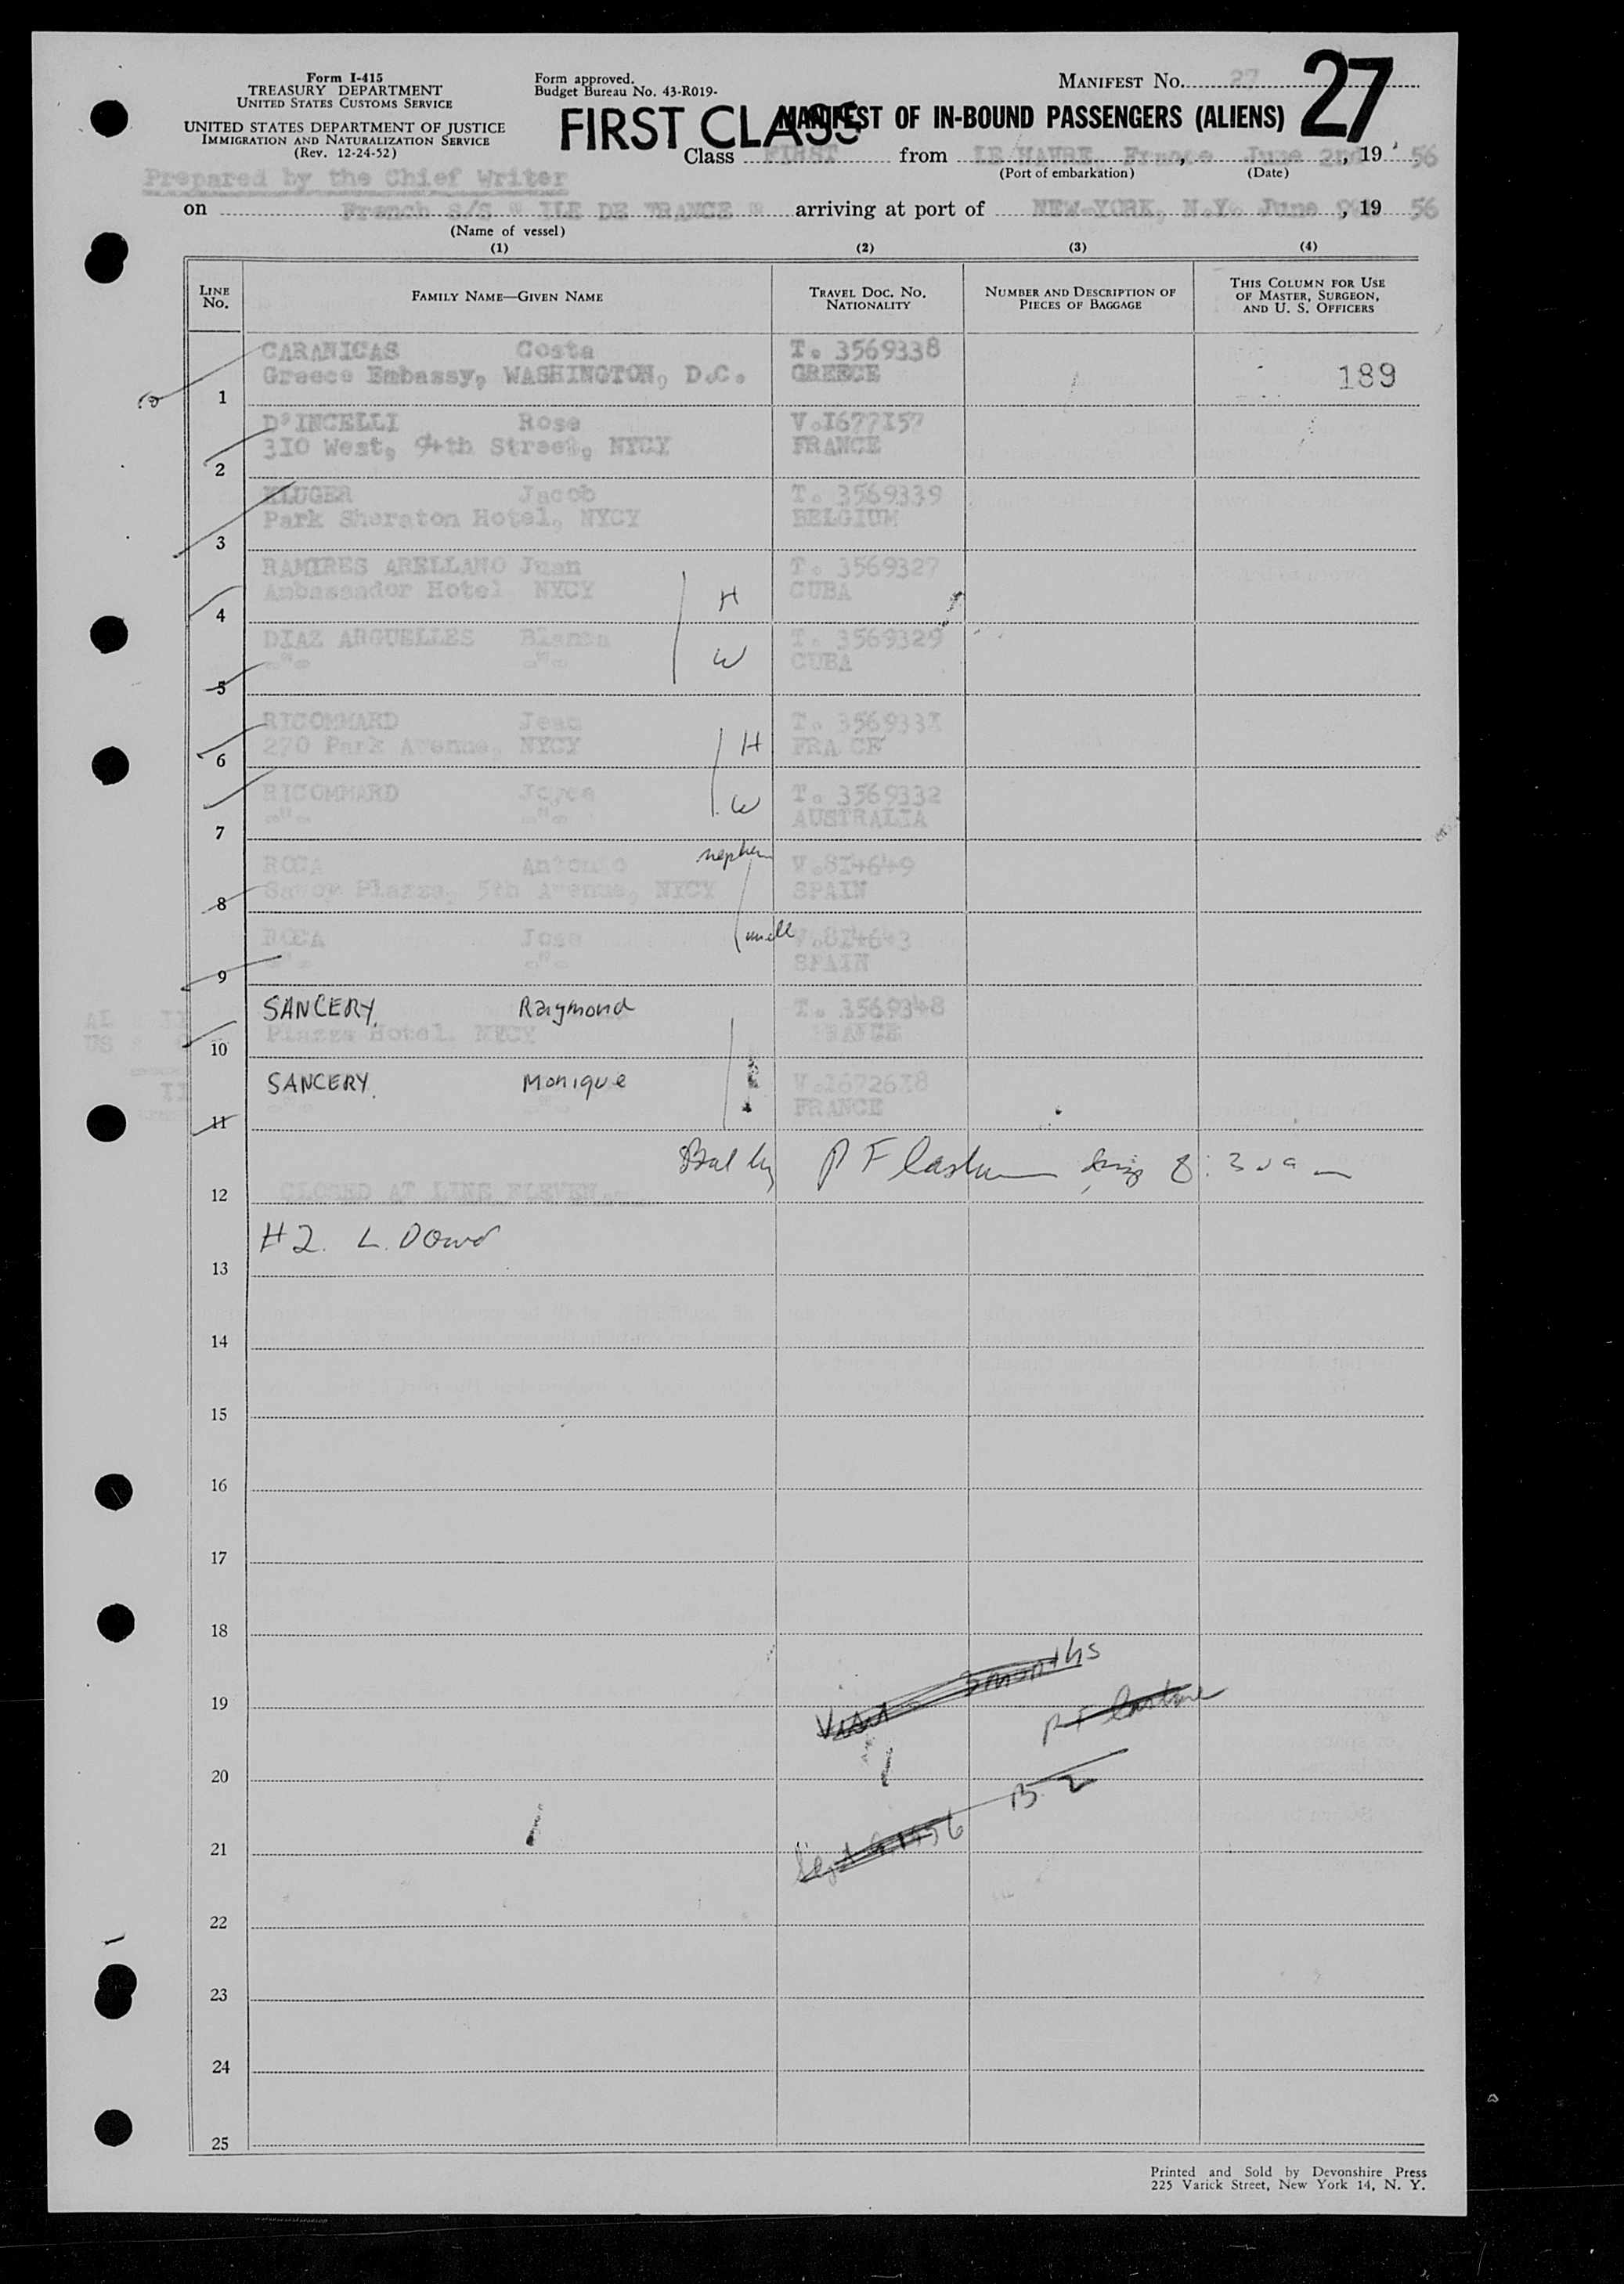 Form I-415
TREASURY DEPARTMENT
UNITED STATES CUSTOMS SERVICE
UNITED STATES DEPARTMENT OF JUSTICE
IMMIGRATION AND NATURALIZATION SERVICE
(Rev. 12-24-52)
Form approved.
Budget Bureau No. 43-R019-
MANIFEST No. 27
27
FIRST CLASS
MANIFEST OF IN-BOUND PASSENGERS (ALIENS)
Class FIRST from LE HAVRE, France, June 2nd, 19 56
(Port of embarkation) (Date)
Prepared by the Chief Writer
on French S/S " ILE DE FRANCE " arriving at port of NEW-YORK, N.Y. June, 19 56
(Name of vessel)
(1) (2) (3) (4)
LINE No. FAMILY NAME—GIVEN NAME TRAVEL DOC. No. NATIONALITY NUMBER AND DESCRIPTION OF PIECES OF BAGGAGE THIS COLUMN FOR USE OF MASTER, SURGEON, AND U. S. OFFICERS
CARANICAS Costa T. 3569338
Greece Embassy, WASHINGTON, D.C. GREECE 189
1
D'INCELLI Rose V.I677I57
3I0 West, 94th Street, NYCY FRANCE
2
KLUGER Jacob T. 3569339
Park Sheraton Hotel, NYCY BELGIUM
3
RAMIRES ARELLANO Juan T. 3569327
Ambassador Hotel NYCY H CUBA
4
DIAZ ARGUELLES Blanca T. 3569329
-"- -"- W CUBA
5
RICOMMARD Jean T. 356933I
270 Park Avenue, NYCY H FRA CE
6
RICOMMARD Joyce T. 3569332
-"- -"- W AUSTRALIA
7
ROCA Antonio nephew V.8I4649
Savoy Plazza, 5th Avenue, NYCY SPAIN
8
ROCA Jose uncle V.8I4643
-"- -"- SPAIN
9
SANCERY, Raymond T. 3569348
Plazza Hotel, NYCY FRANCE
10
SANCERY, Monique V.I6726I8
-"- -"- FRANCE
11
CLOSED AT LINE ELEVEN
12
#2. L. Dowd
13
14
15
16
17
18
Visit 3 months
19
20
B-2
21
Sept 9 1956
22
23
24
25
Printed and Sold by Devonshire Press
225 Varick Street, New York 14, N. Y.